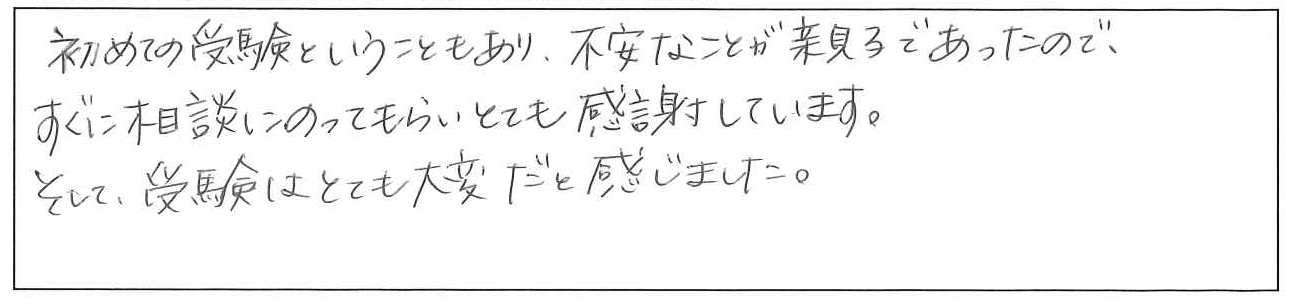 初めての受験ということもあり、不安なことが親子であったので、
すぐに相談にのってもらいとても感謝しています。
そして、受験はとても大変だと感じました。